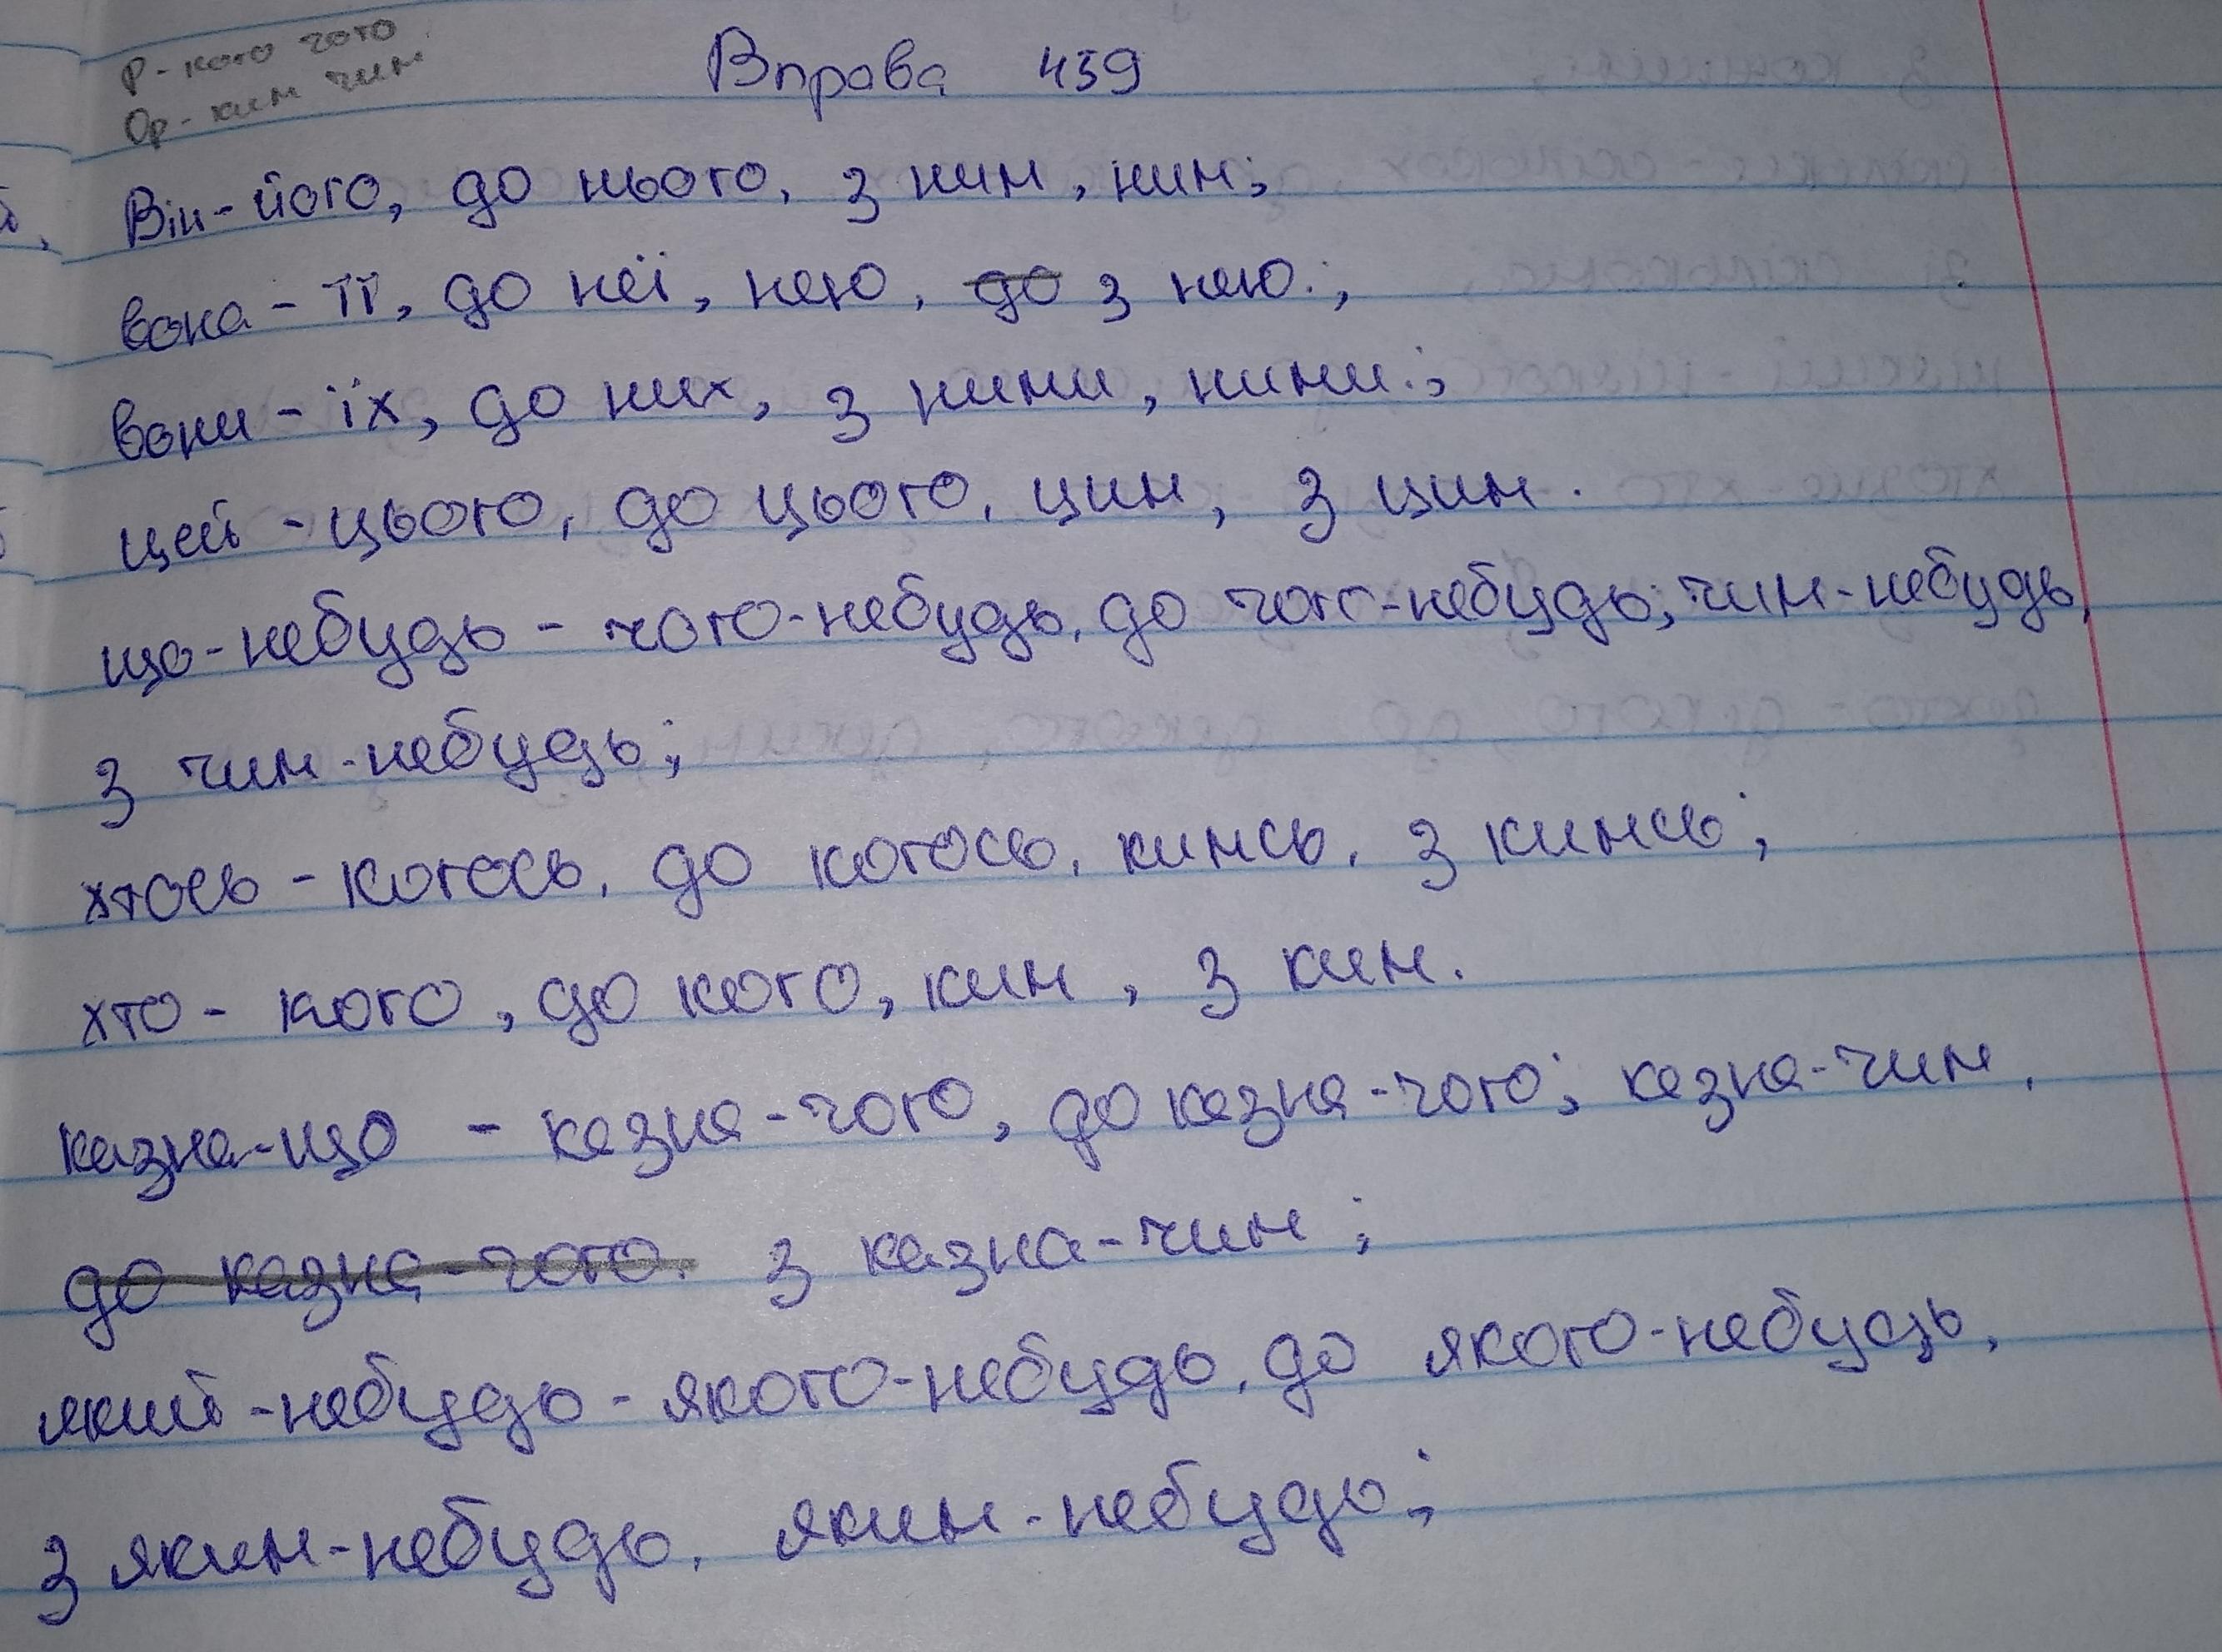 Р - кого чого
Ор - ким чим
Вправа 459
Він - його, до нього, з ним, ним;
вона - її, до неї, нею, до з нею.;
вони - їх, до них, з ними, ними.;
цей - цього, до цього, цим, з цим.
що-небудь - чого-небудь, до чого-небудь; чим-небудь,
з чим-небудь;
хтось - когось, до когось, кимсь, з кимсь;
хто - кого, до кого, ким, з ким.
казна-що - казна-чого, до казна-чого; казна-чим,
до казна-чого. з казна-чим;
який-небудь - якого-небудь, до якого-небудь,
з яким-небудь, яким-небудь;